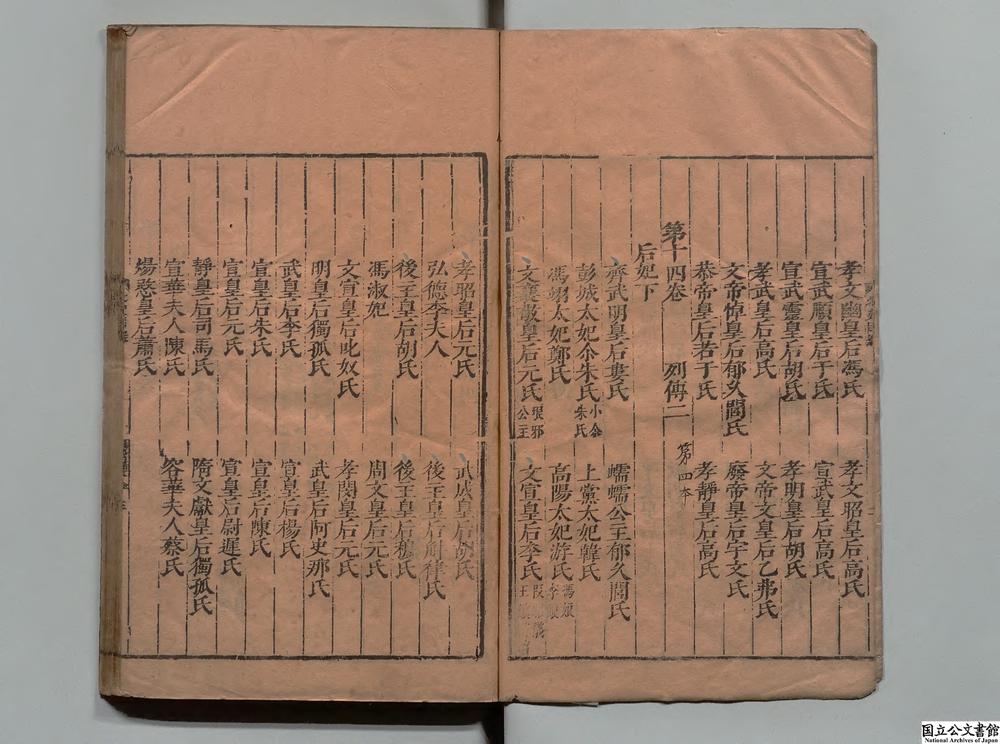 孝文幽皇后馮氏　孝文昭皇后高氏
宣武順皇后于氏　宣武皇后高氏
宣武靈皇后胡氏　孝明皇后胡氏
孝武皇后高氏　文帝文皇后乙弗氏
文帝悼皇后郁久閭氏　廢帝皇后宇文氏
恭帝皇后若干氏　孝靜皇后高氏
第十四卷　列傳二　第四本
后妃下
齊武明皇后婁氏　蠕蠕公主郁久閭氏
彭城太妃尒朱氏　小尒朱氏　上黨太妃韓氏
馮翊太妃鄭氏　高陽太妃游氏　馮娘　李娘
文襄敬皇后元氏　琅邪公主　文宣皇后李氏　段　王
孝昭皇后元氏　武成皇后胡氏
弘德李夫人　後主皇后斛律氏
後主皇后胡氏　後主皇后穆氏
馮淑妃　周文皇后元氏
文宣皇后叱奴氏　孝閔皇后元氏
明皇后獨孤氏　武皇后阿史那氏
武皇后李氏　宣皇后楊氏
宣皇后朱氏　宣皇后陳氏
宣皇后元氏　宣皇后尉遲氏
靜皇后司馬氏　隋文獻皇后獨孤氏
宣華夫人陳氏　容華夫人蔡氏
煬愍皇后蕭氏
国立公文書館
National Archives of Japan